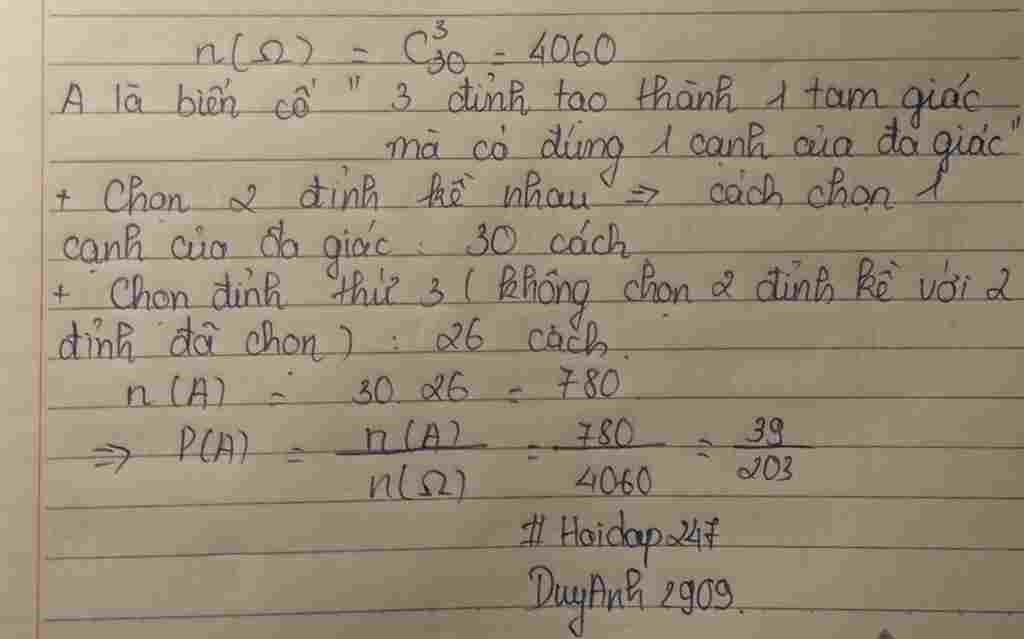 n(Ω) = C³₃₀ = 4060
A là biến cố " 3 đỉnh tạo thành 1 tam giác
mà có đúng 1 cạnh của đa giác"
+ Chọn 2 đỉnh kề nhau ⇒ cách chọn 1
cạnh của đa giác : 30 cách
+ Chọn đỉnh thứ 3 ( không chọn 2 đỉnh kề với 2
đỉnh đã chọn ) : 26 cách.
n(A) = 30.26 = 780
⇒ P(A) = n(A)/n(Ω) = 780/4060 = 39/203
# Hoidap247
DuyAnh 2909.